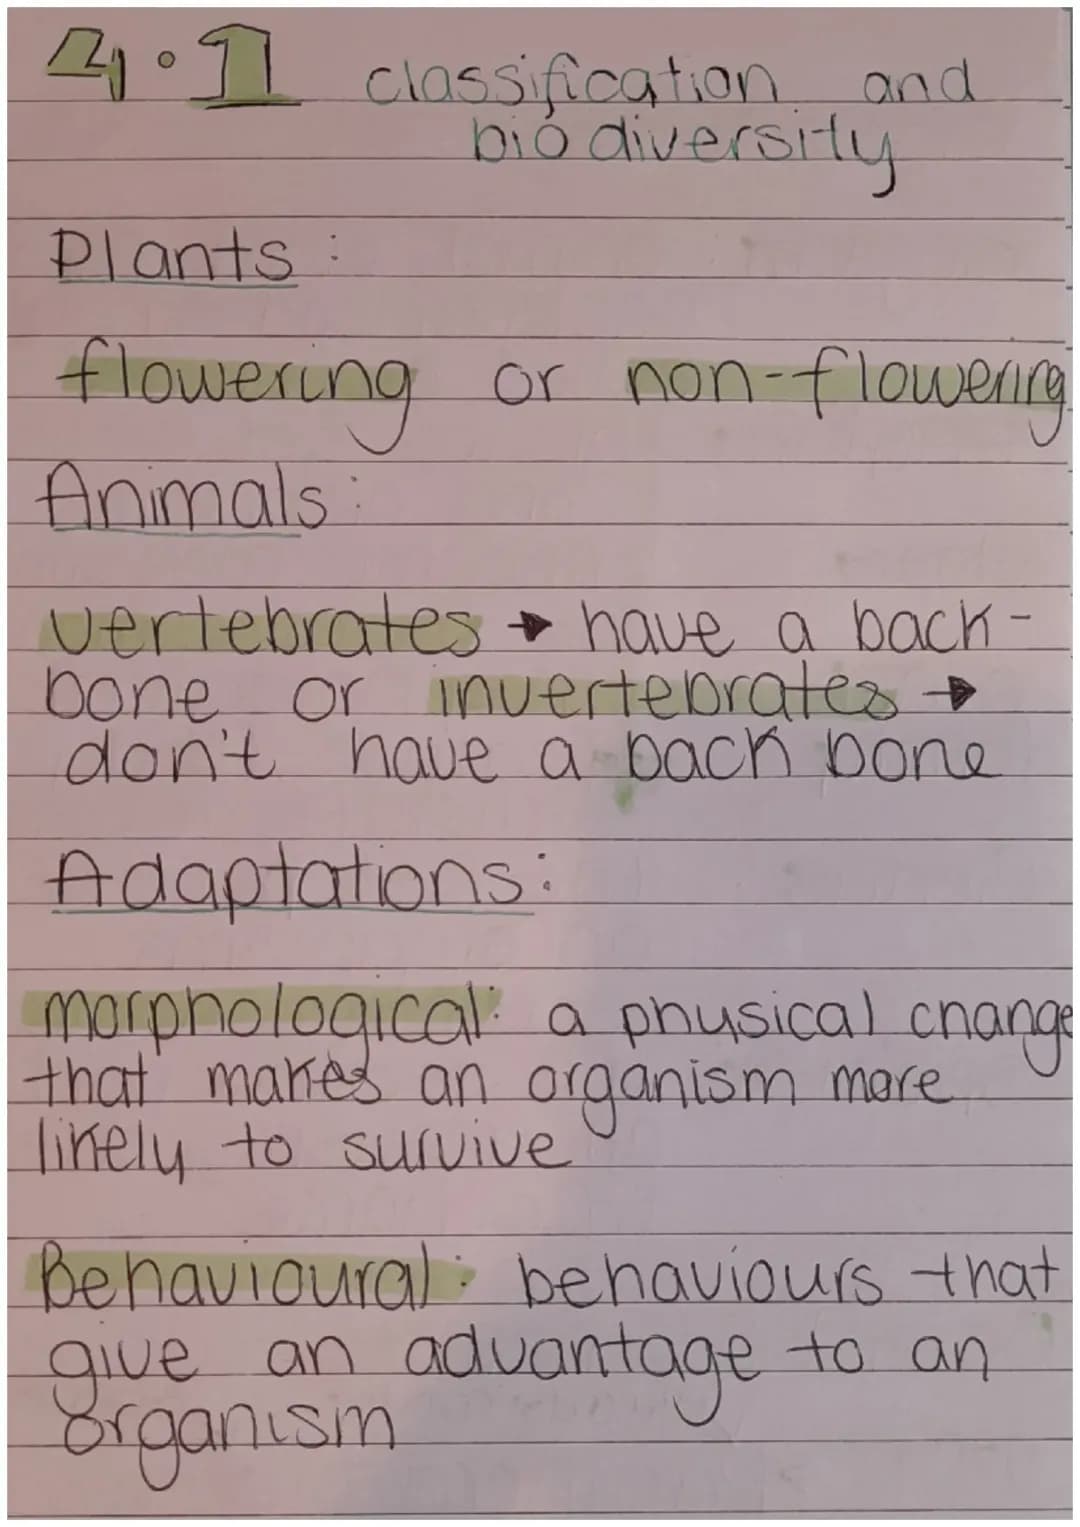 4.1 classification and
biodiversity
Plants:
flowering or non-flowering
Animals:
vertebrates → have a back-
bone or invertebrates →
don't have a back bone
Adaptations:
morphological: a physical change
that makes an organism more
likely to survive
Behavioural: behaviours that
give an advantage to an
organism